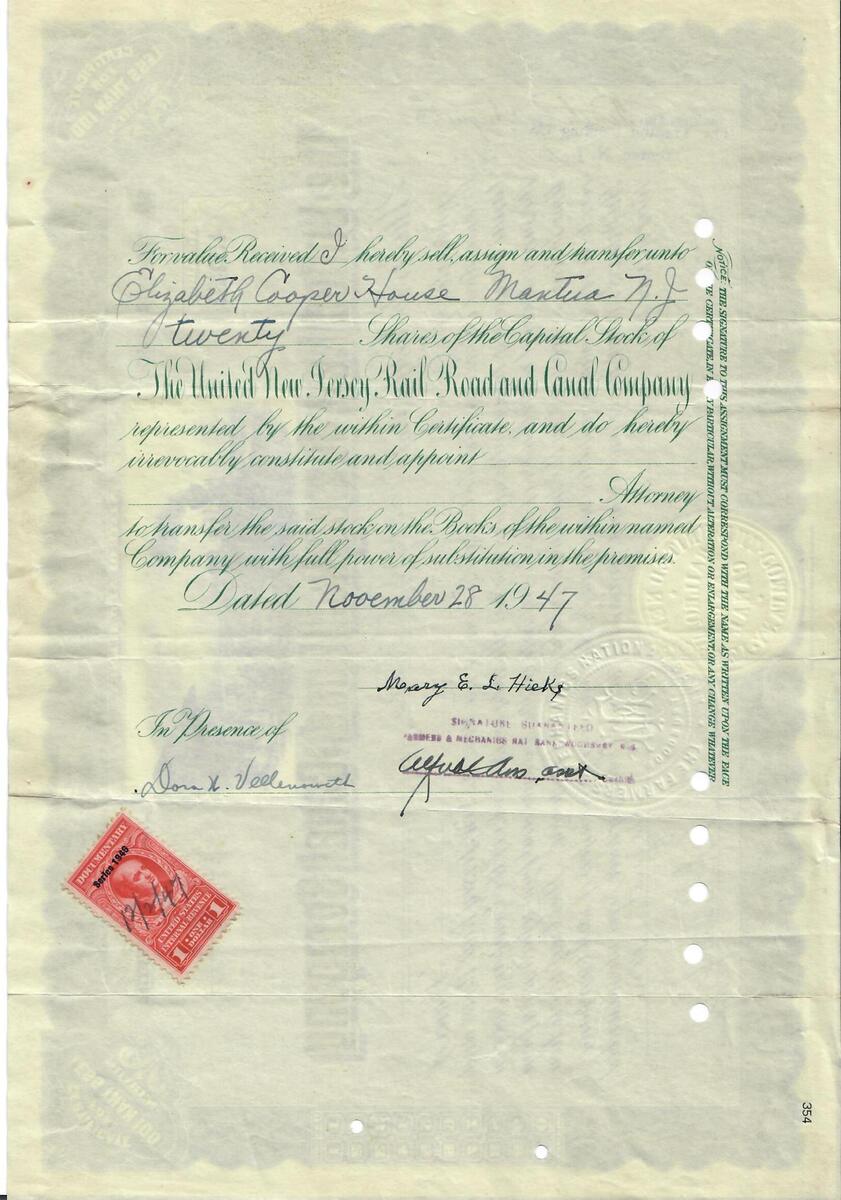 For value Received I hereby sell, assign and transfer unto
Elizabeth Cooper House Mantua N.J
twenty Shares of the Capital Stock of
The United New Jersey Rail Road and Canal Company
represented by the within Certificate and do hereby
irrevocably constitute and appoint
Attorney
to transfer the said stock on the Books of the within named
Company with full power of substitution in the premises.
Dated November 28 1947
Mary E. L. Hicks
In Presence of
SIGNATURE GUARANTEED
FARMERS & MECHANICS NAT BANK WOODBURY N.J.
Dora H.
DOCUMENTARY
Series 1946
12/2/47
UNITED STATES
INTERNAL REVENUE
1 ONE DOLLAR 1
NOTICE THE SIGNATURE TO THIS ASSIGNMENT MUST CORRESPOND WITH THE NAME AS WRITTEN UPON THE FACE
CERTIFICATE, IN PARTICULAR, WITHOUT ALTERATION OR ENLARGEMENT, OR ANY CHANGE WHATEVER
354